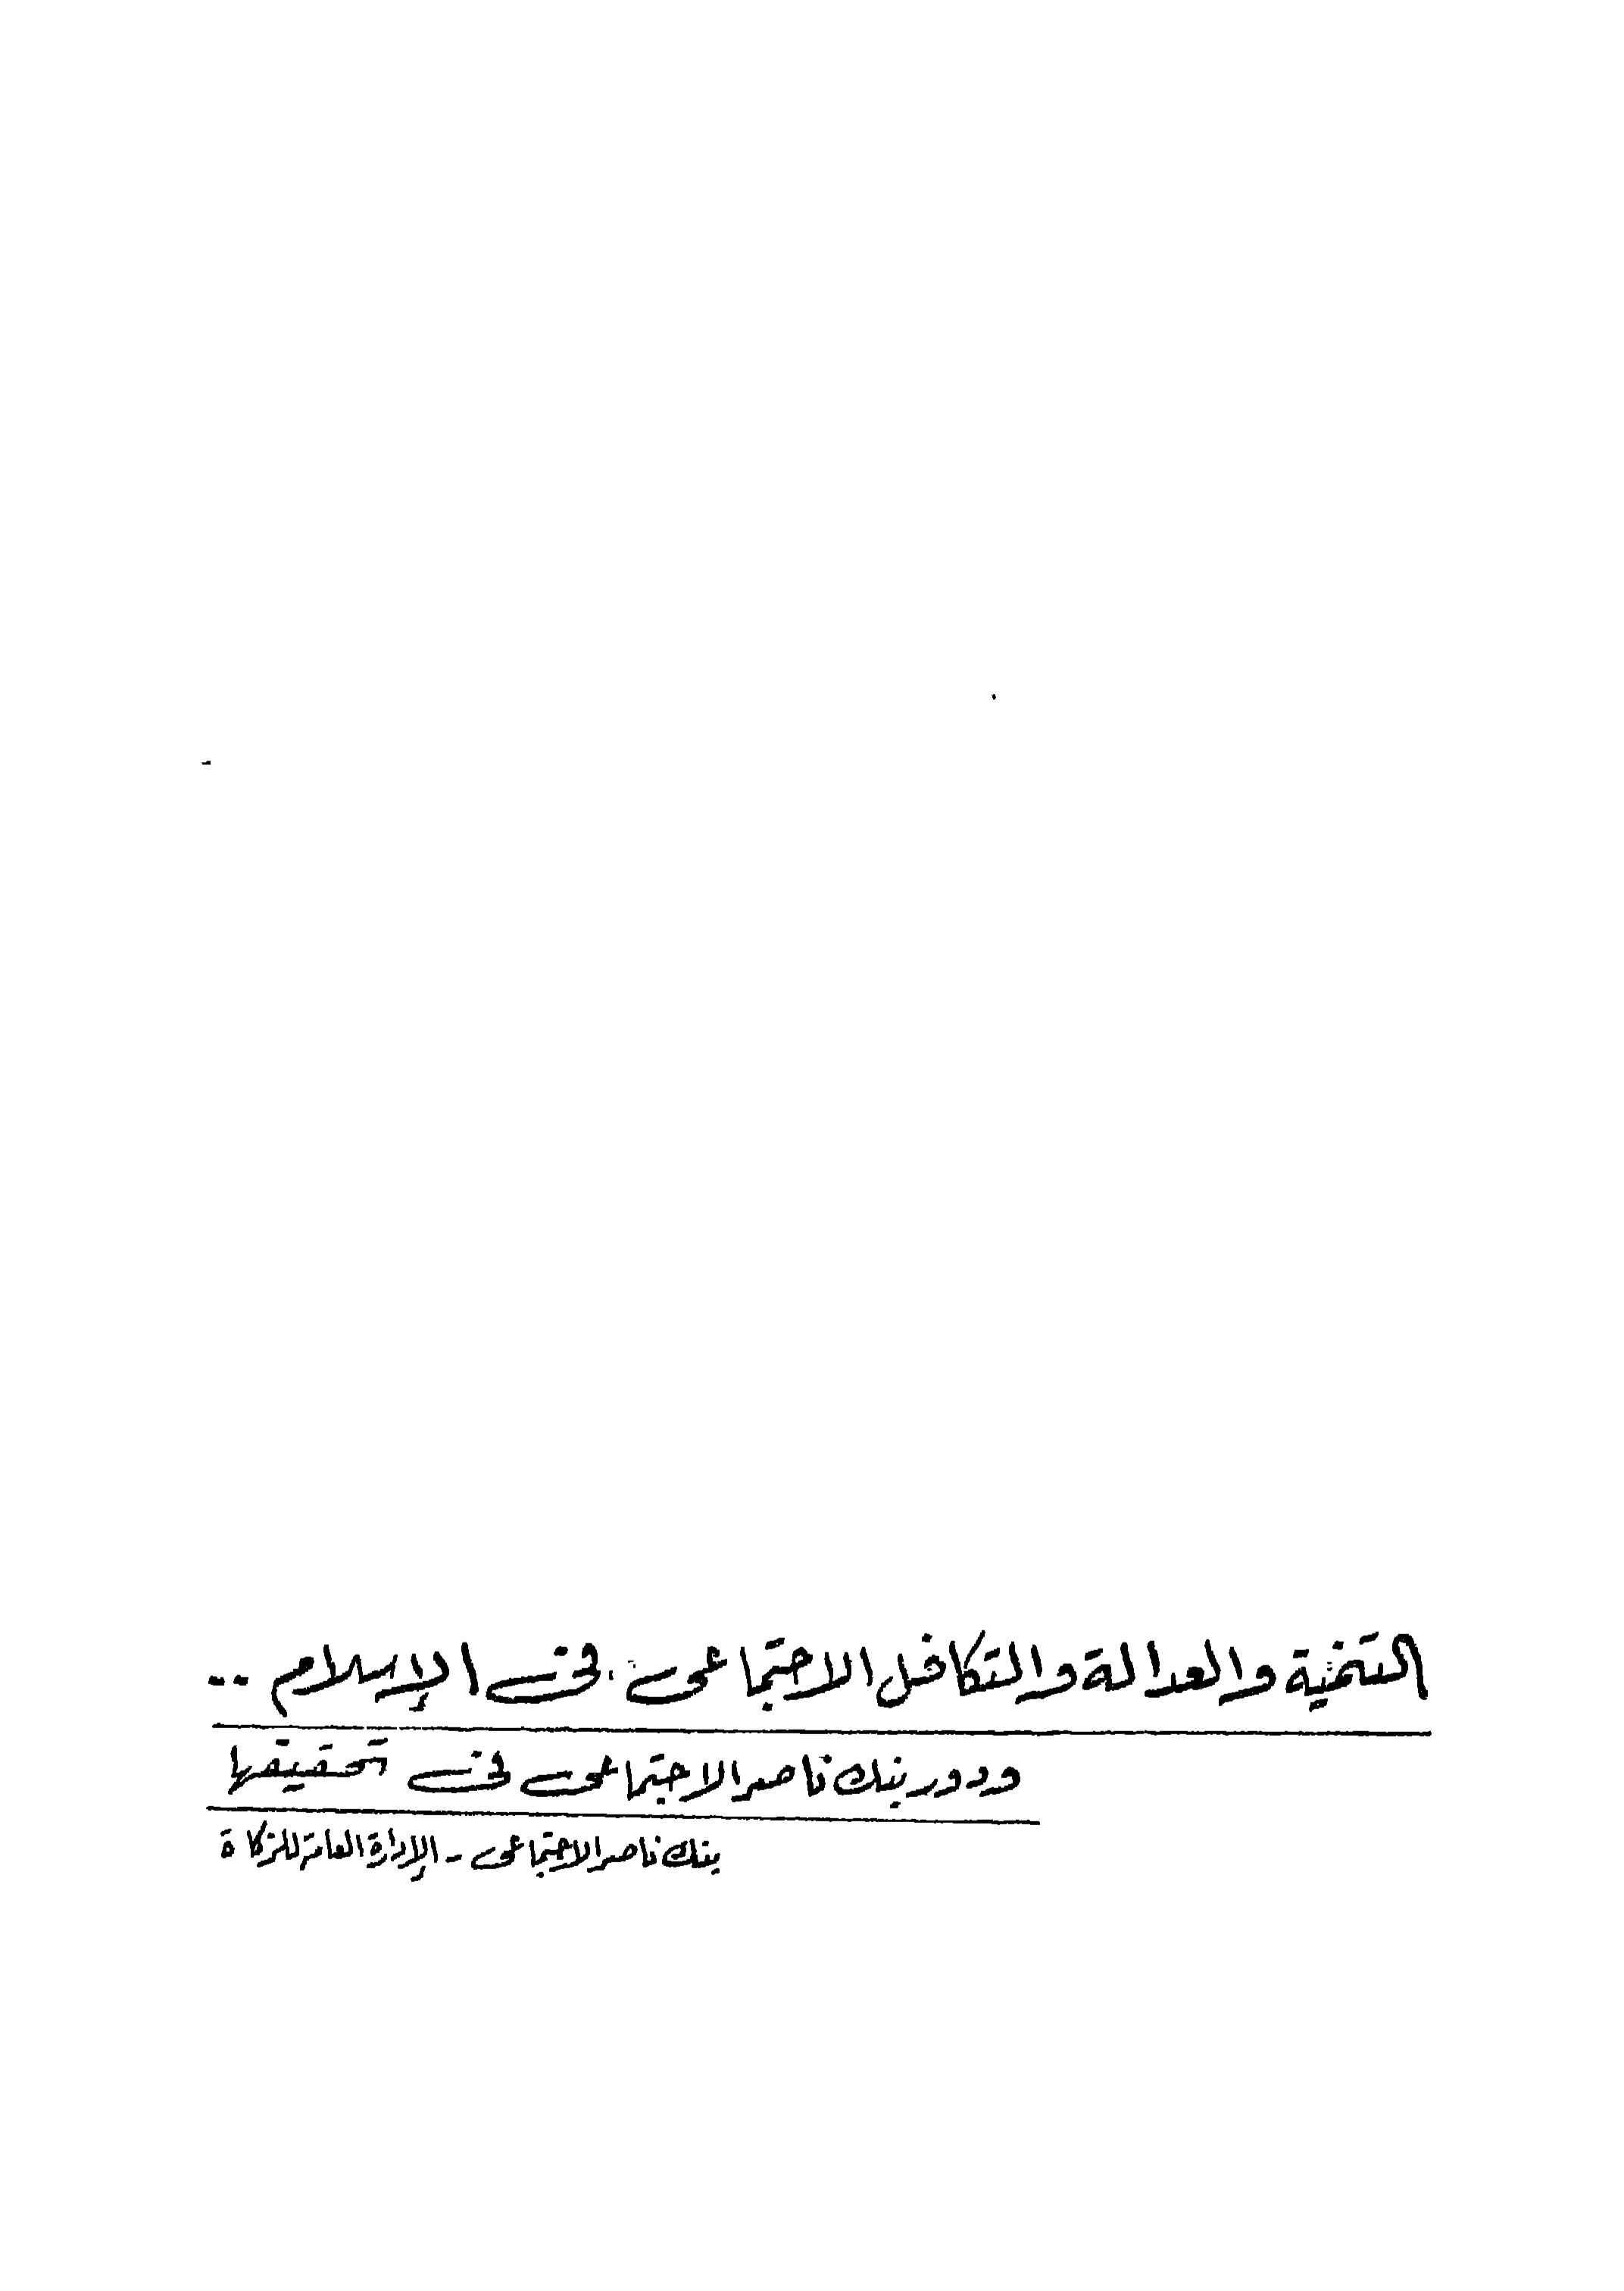 التنمية والعدالة والتكافل الاجتماعى فى الإسلام ..
ودور بنك ناصر الاجتماعى فى تحقيقها
بنك ناصر الاجتماعى - الإدارة العامة للزكاة